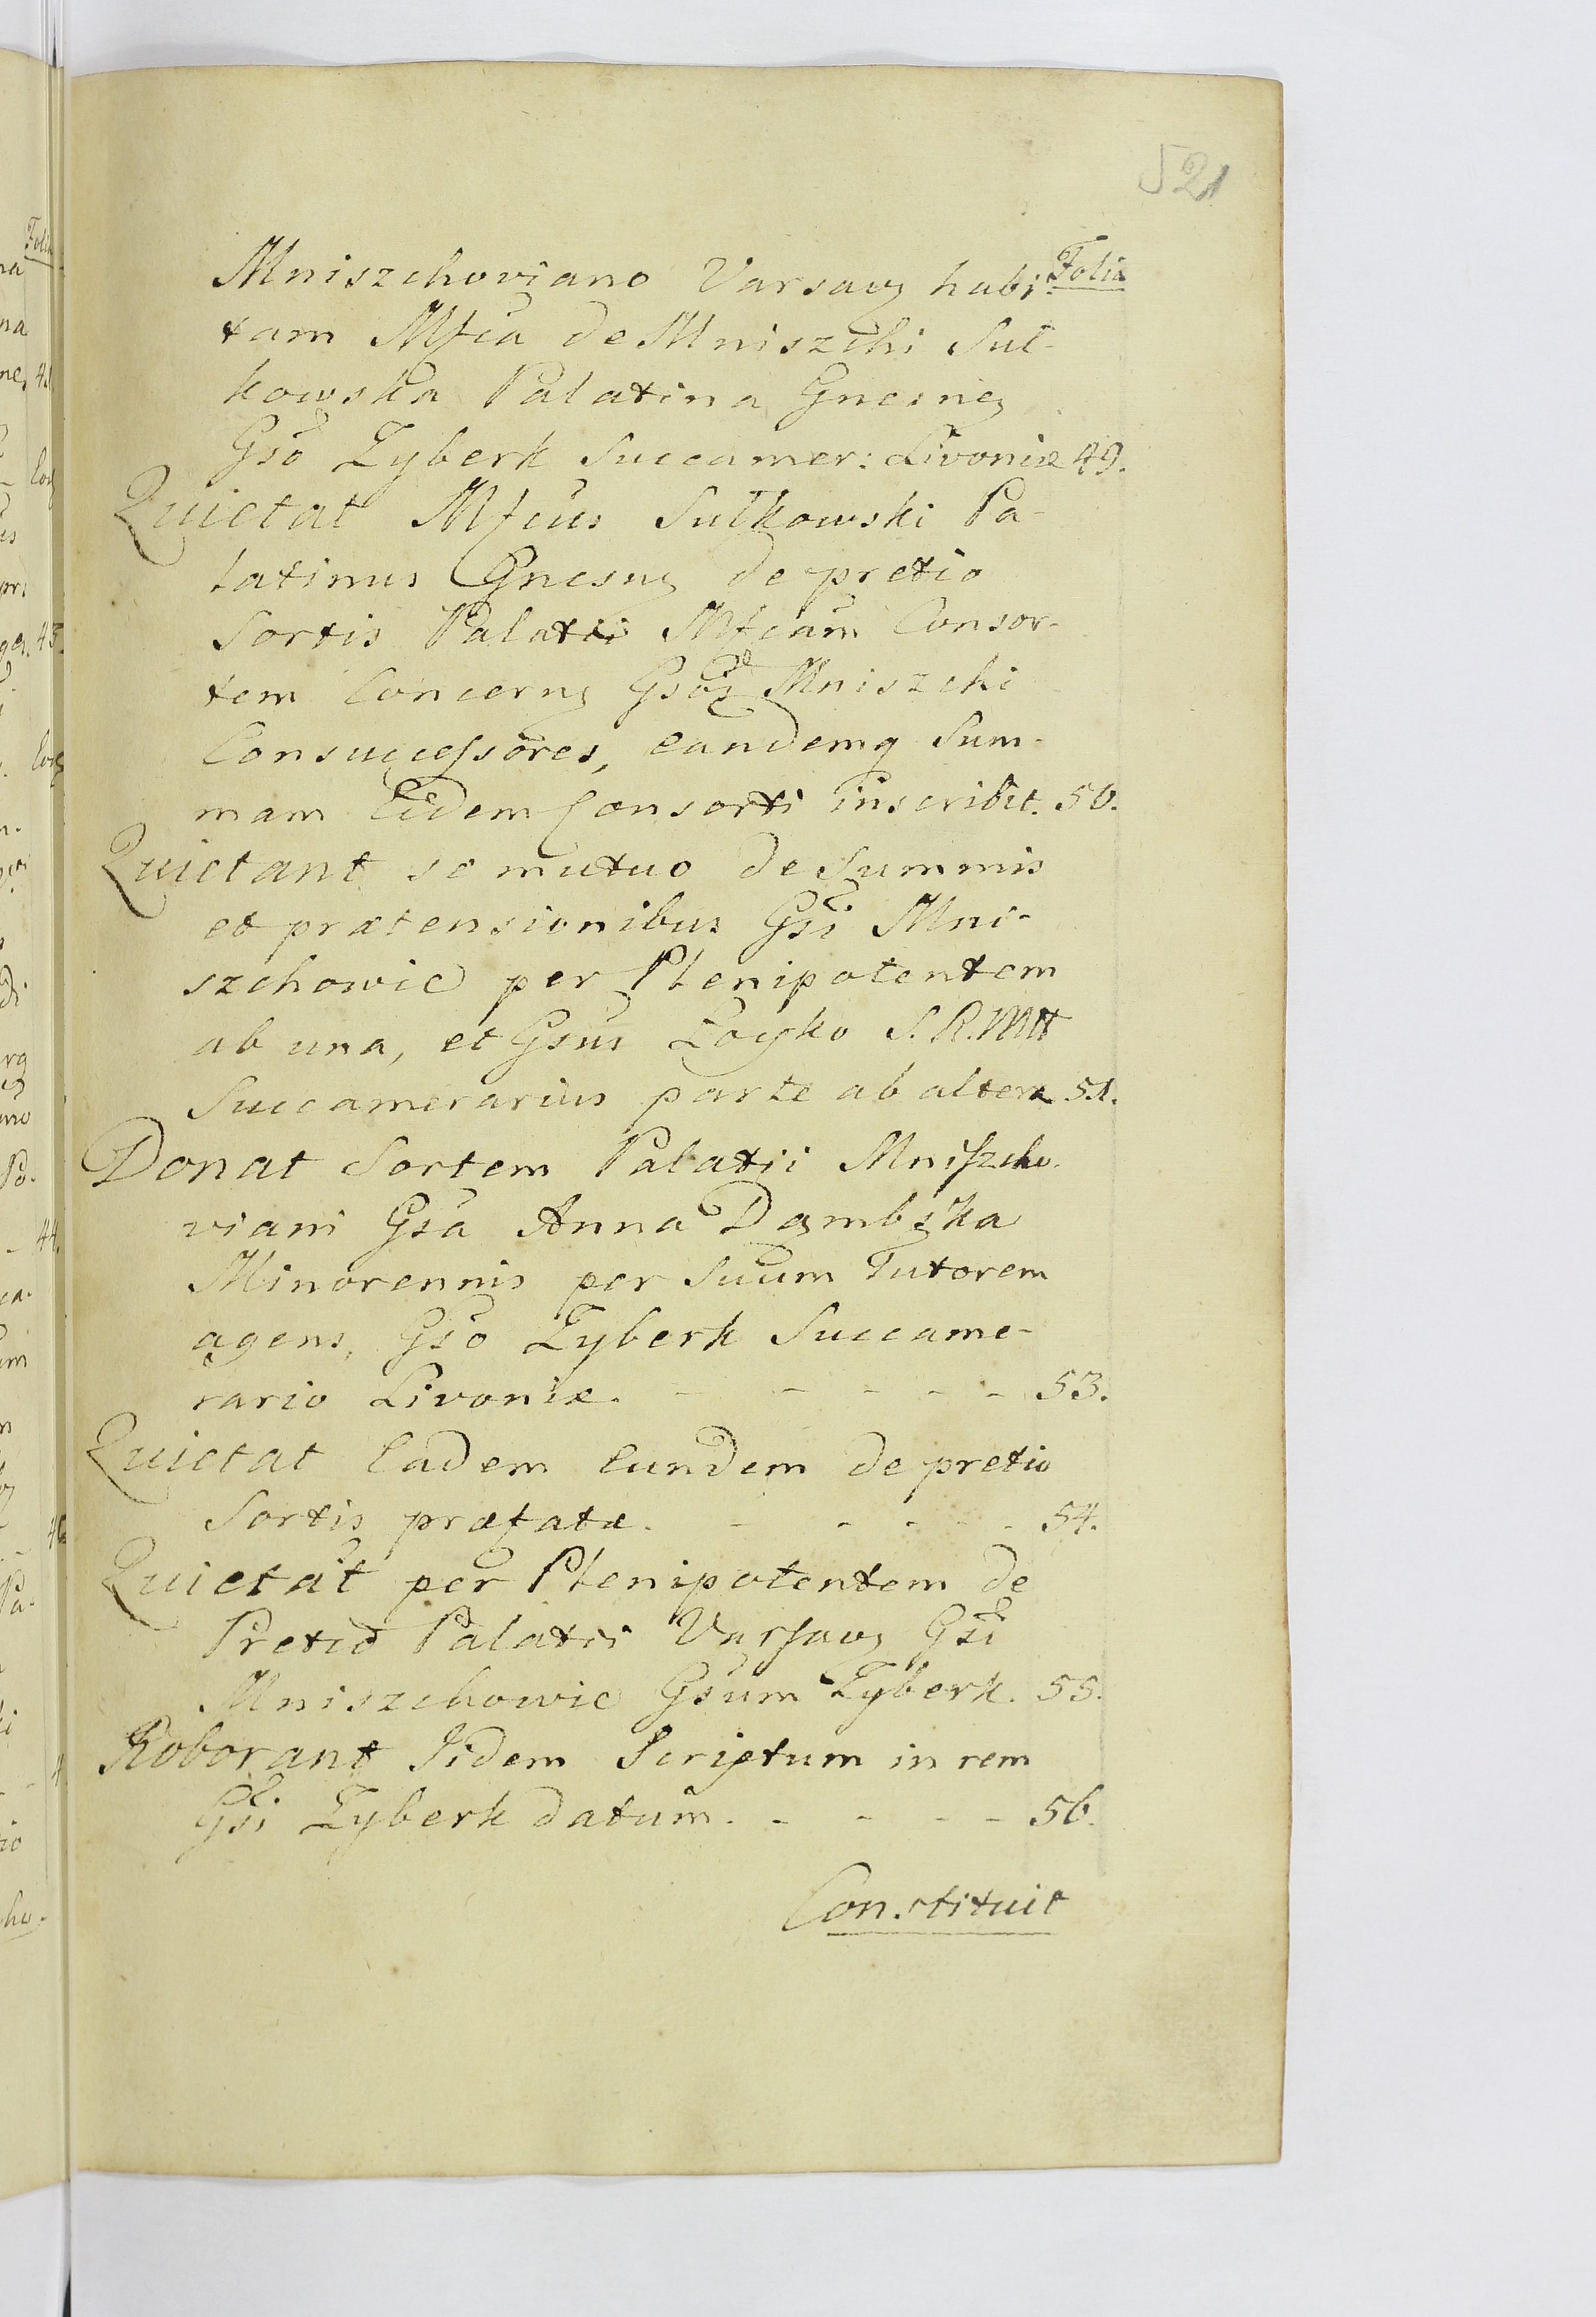 521
Folia
Mniszchoviano Varsavę habi
tam Mfca de Mniszchi Sul-
kowska Palatina Gnesnę
Gso Zyberk Succamer: Livoniæ 49.
Quietat Mfcus Sułkowski Pa-
latinus Gnesnę de pretio
Sortis Palatii Mfcam Consor-
tem Concernę Gsos Mniszchi
Consuccessores, eandemq Sum-
mam Eidem Consorti inscribit. 50.
Quietant se mutuo de Summis
et prætensionibus Gsi Mni-
szchowie per Plenipotentem
ab una, et Gsus Łoyko S. R. Mtt
Succamerarius parte ab altera 51.
Donat Sortem Palatii Mniszcho-
viani Gsa Anna Dąmbska
Minorennis per Suum Tutorem
agens, Gso Zyberk Succame-
rario Livoniæ. - - - - - 53.
Quietat Eadem Eundem de pretio
Sortis præfatæ. - - - - - 54.
Quietat per Plenipotentem de
Pretio Palatii Varsavę Gsi
Mniszchowie Gsum Zyberk. 55.
Roborant Iidem Scriptum in rem
Gsi Zyberk datum. - - - - 56.
Constituit